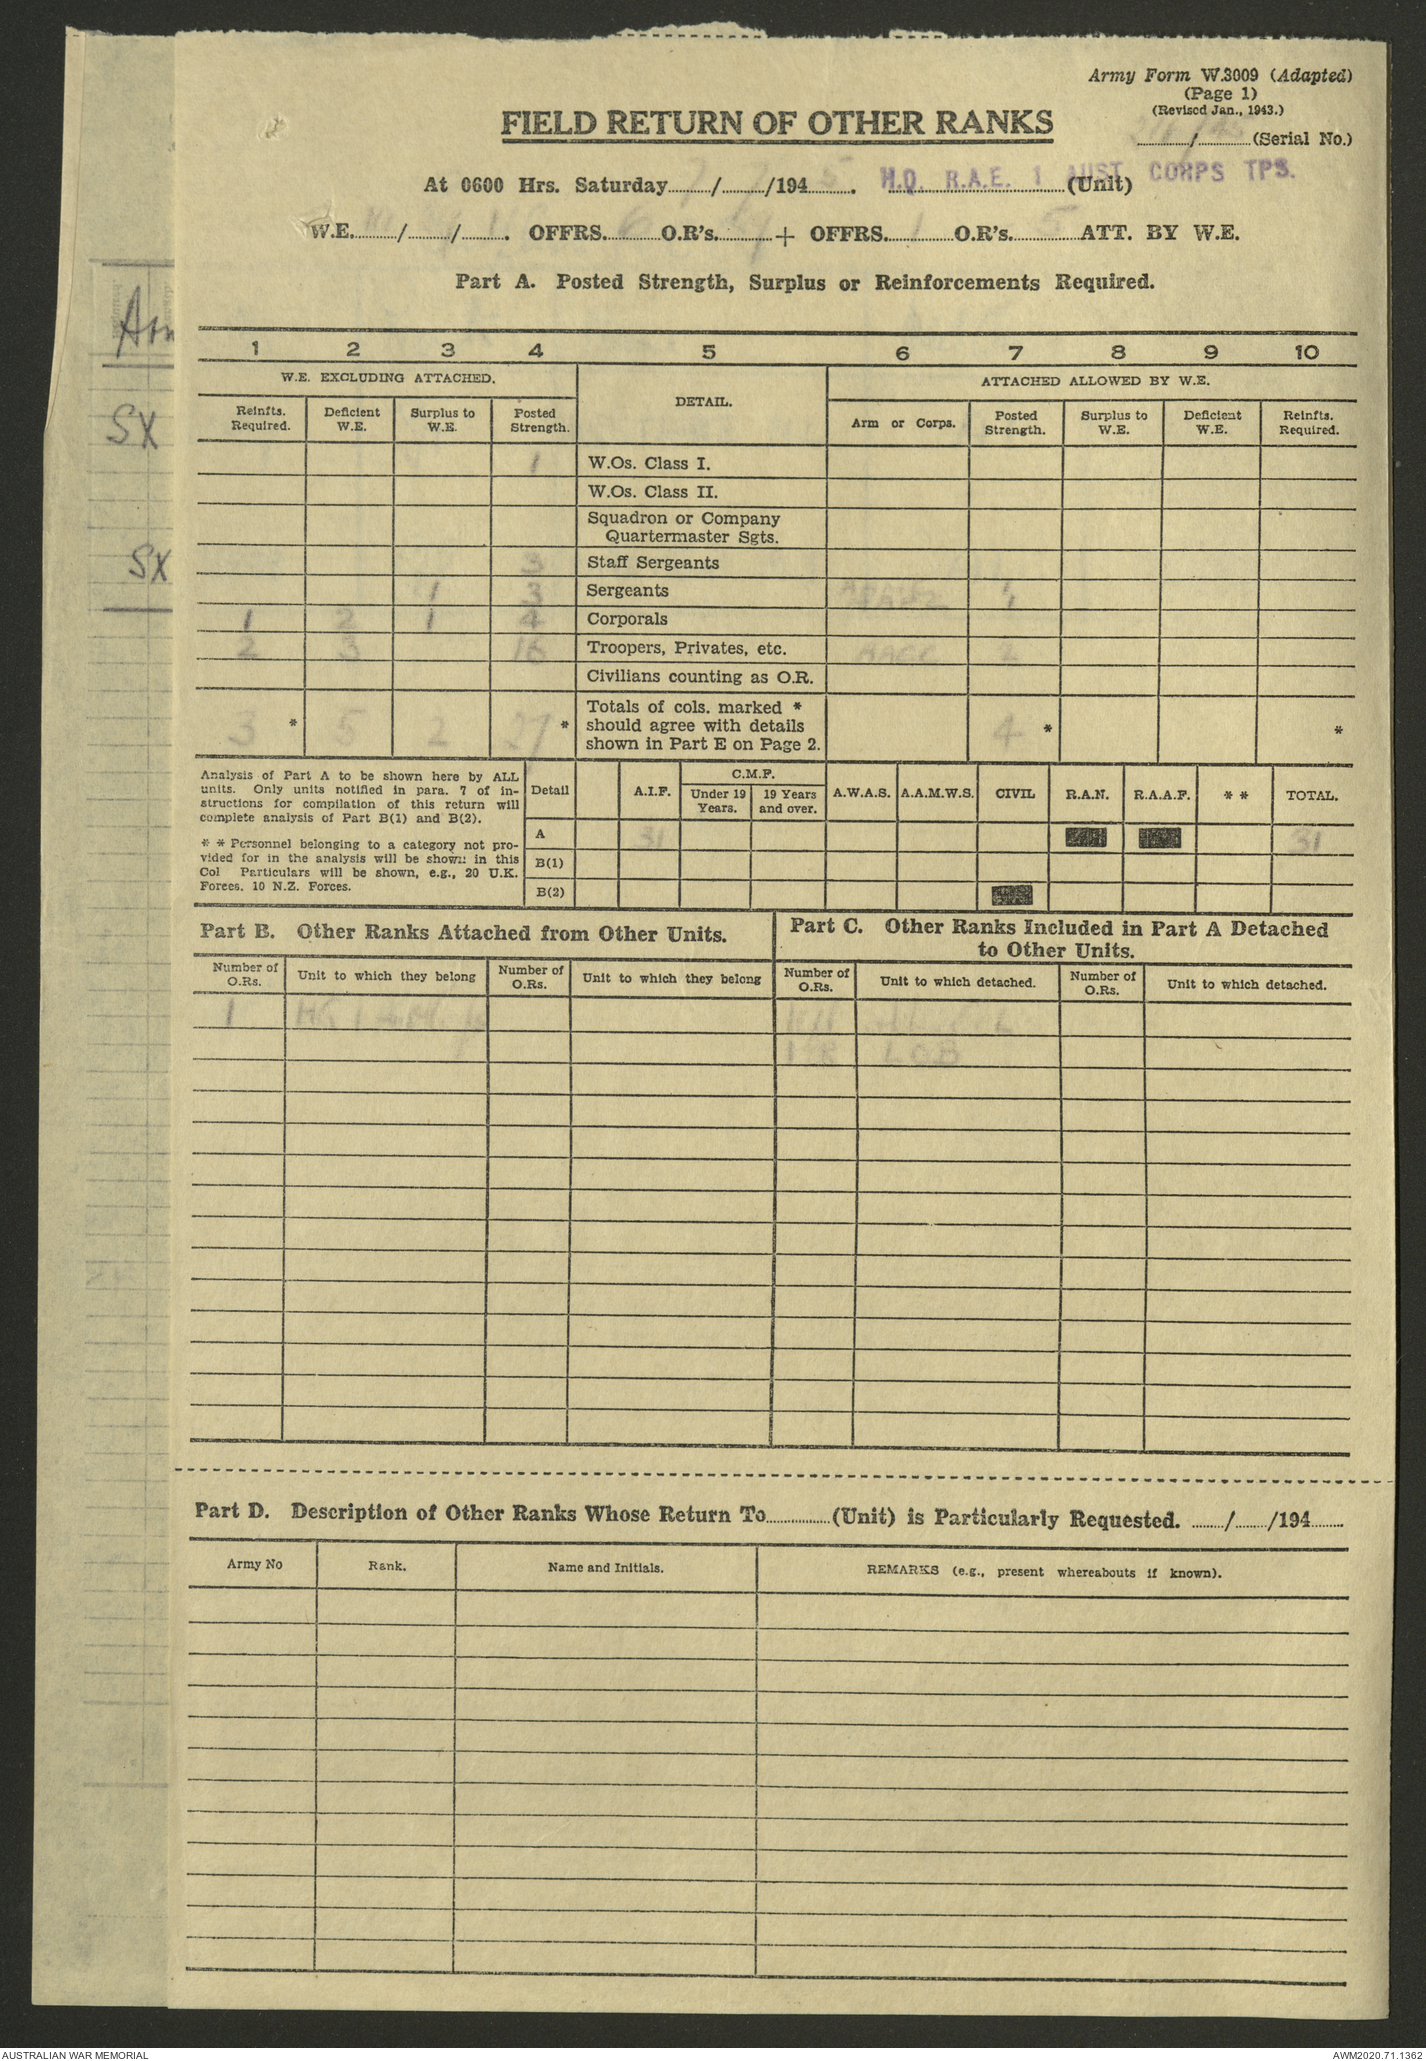 Army Form W.3009 (Adapted)
(Page 1)
(Revised Jan., 1943.)
FIELD RETURN OF OTHER RANKS
/ (Serial No.)
At 0600 Hrs. Saturday 7/7/1945. H.Q. R.A.E. 1 AUST CORPS TPS. (Unit)
W.E. / / . OFFRS. 6 O.R's. + OFFRS. 1 O.R's. 5 ATT. BY W.E.
Part A. Posted Strength, Surplus or Reinforcements Required.
1 2 3 4 5 6 7 8 9 10
W.E. EXCLUDING ATTACHED. DETAIL. ATTACHED ALLOWED BY W.E.
Reinfts. Required. Deficient W.E. Surplus to W.E. Posted Strength. Arm or Corps. Posted Strength. Surplus to W.E. Deficient W.E. Reinfts. Required.
1 W.Os. Class I.
W.Os. Class II.
Squadron or Company
Quartermaster Sgts.
3 Staff Sergeants
1 3 Sergeants
1 2 1 4 Corporals
2 3 16 Troopers, Privates, etc. AACC 2
Civilians counting as O.R.
Totals of cols. marked *
should agree with details
shown in Part E on Page 2.
3 * 5 2 27 * 4 * *
Analysis of Part A to be shown here by ALL
units. Only units notified in para. 7 of in-
structions for compilation of this return will
complete analysis of Part B(1) and B(2).
* * Personnel belonging to a category not pro-
vided for in the analysis will be shown in this
Col Particulars will be shown, e.g., 20 U.K.
Forces. 10 N.Z. Forces.
Detail A.I.F. C.M.F. Under 19 Years. 19 Years and over. A.W.A.S. A.A.M.W.S. CIVIL R.A.N. R.A.A.F. * * TOTAL.
A 31 31
B(1)
B(2)
Part B. Other Ranks Attached from Other Units.
Part C. Other Ranks Included in Part A Detached
to Other Units.
Number of O.Rs. Unit to which they belong Number of O.Rs. Unit to which they belong Number of O.Rs. Unit to which detached. Number of O.Rs. Unit to which detached.
1
LOB
Part D. Description of Other Ranks Whose Return To (Unit) is Particularly Requested. / /194
Army No Rank. Name and Initials. REMARKS (e.g., present whereabouts if known).
SX
SX
AUSTRALIAN WAR MEMORIAL
AWM2020.71.1362